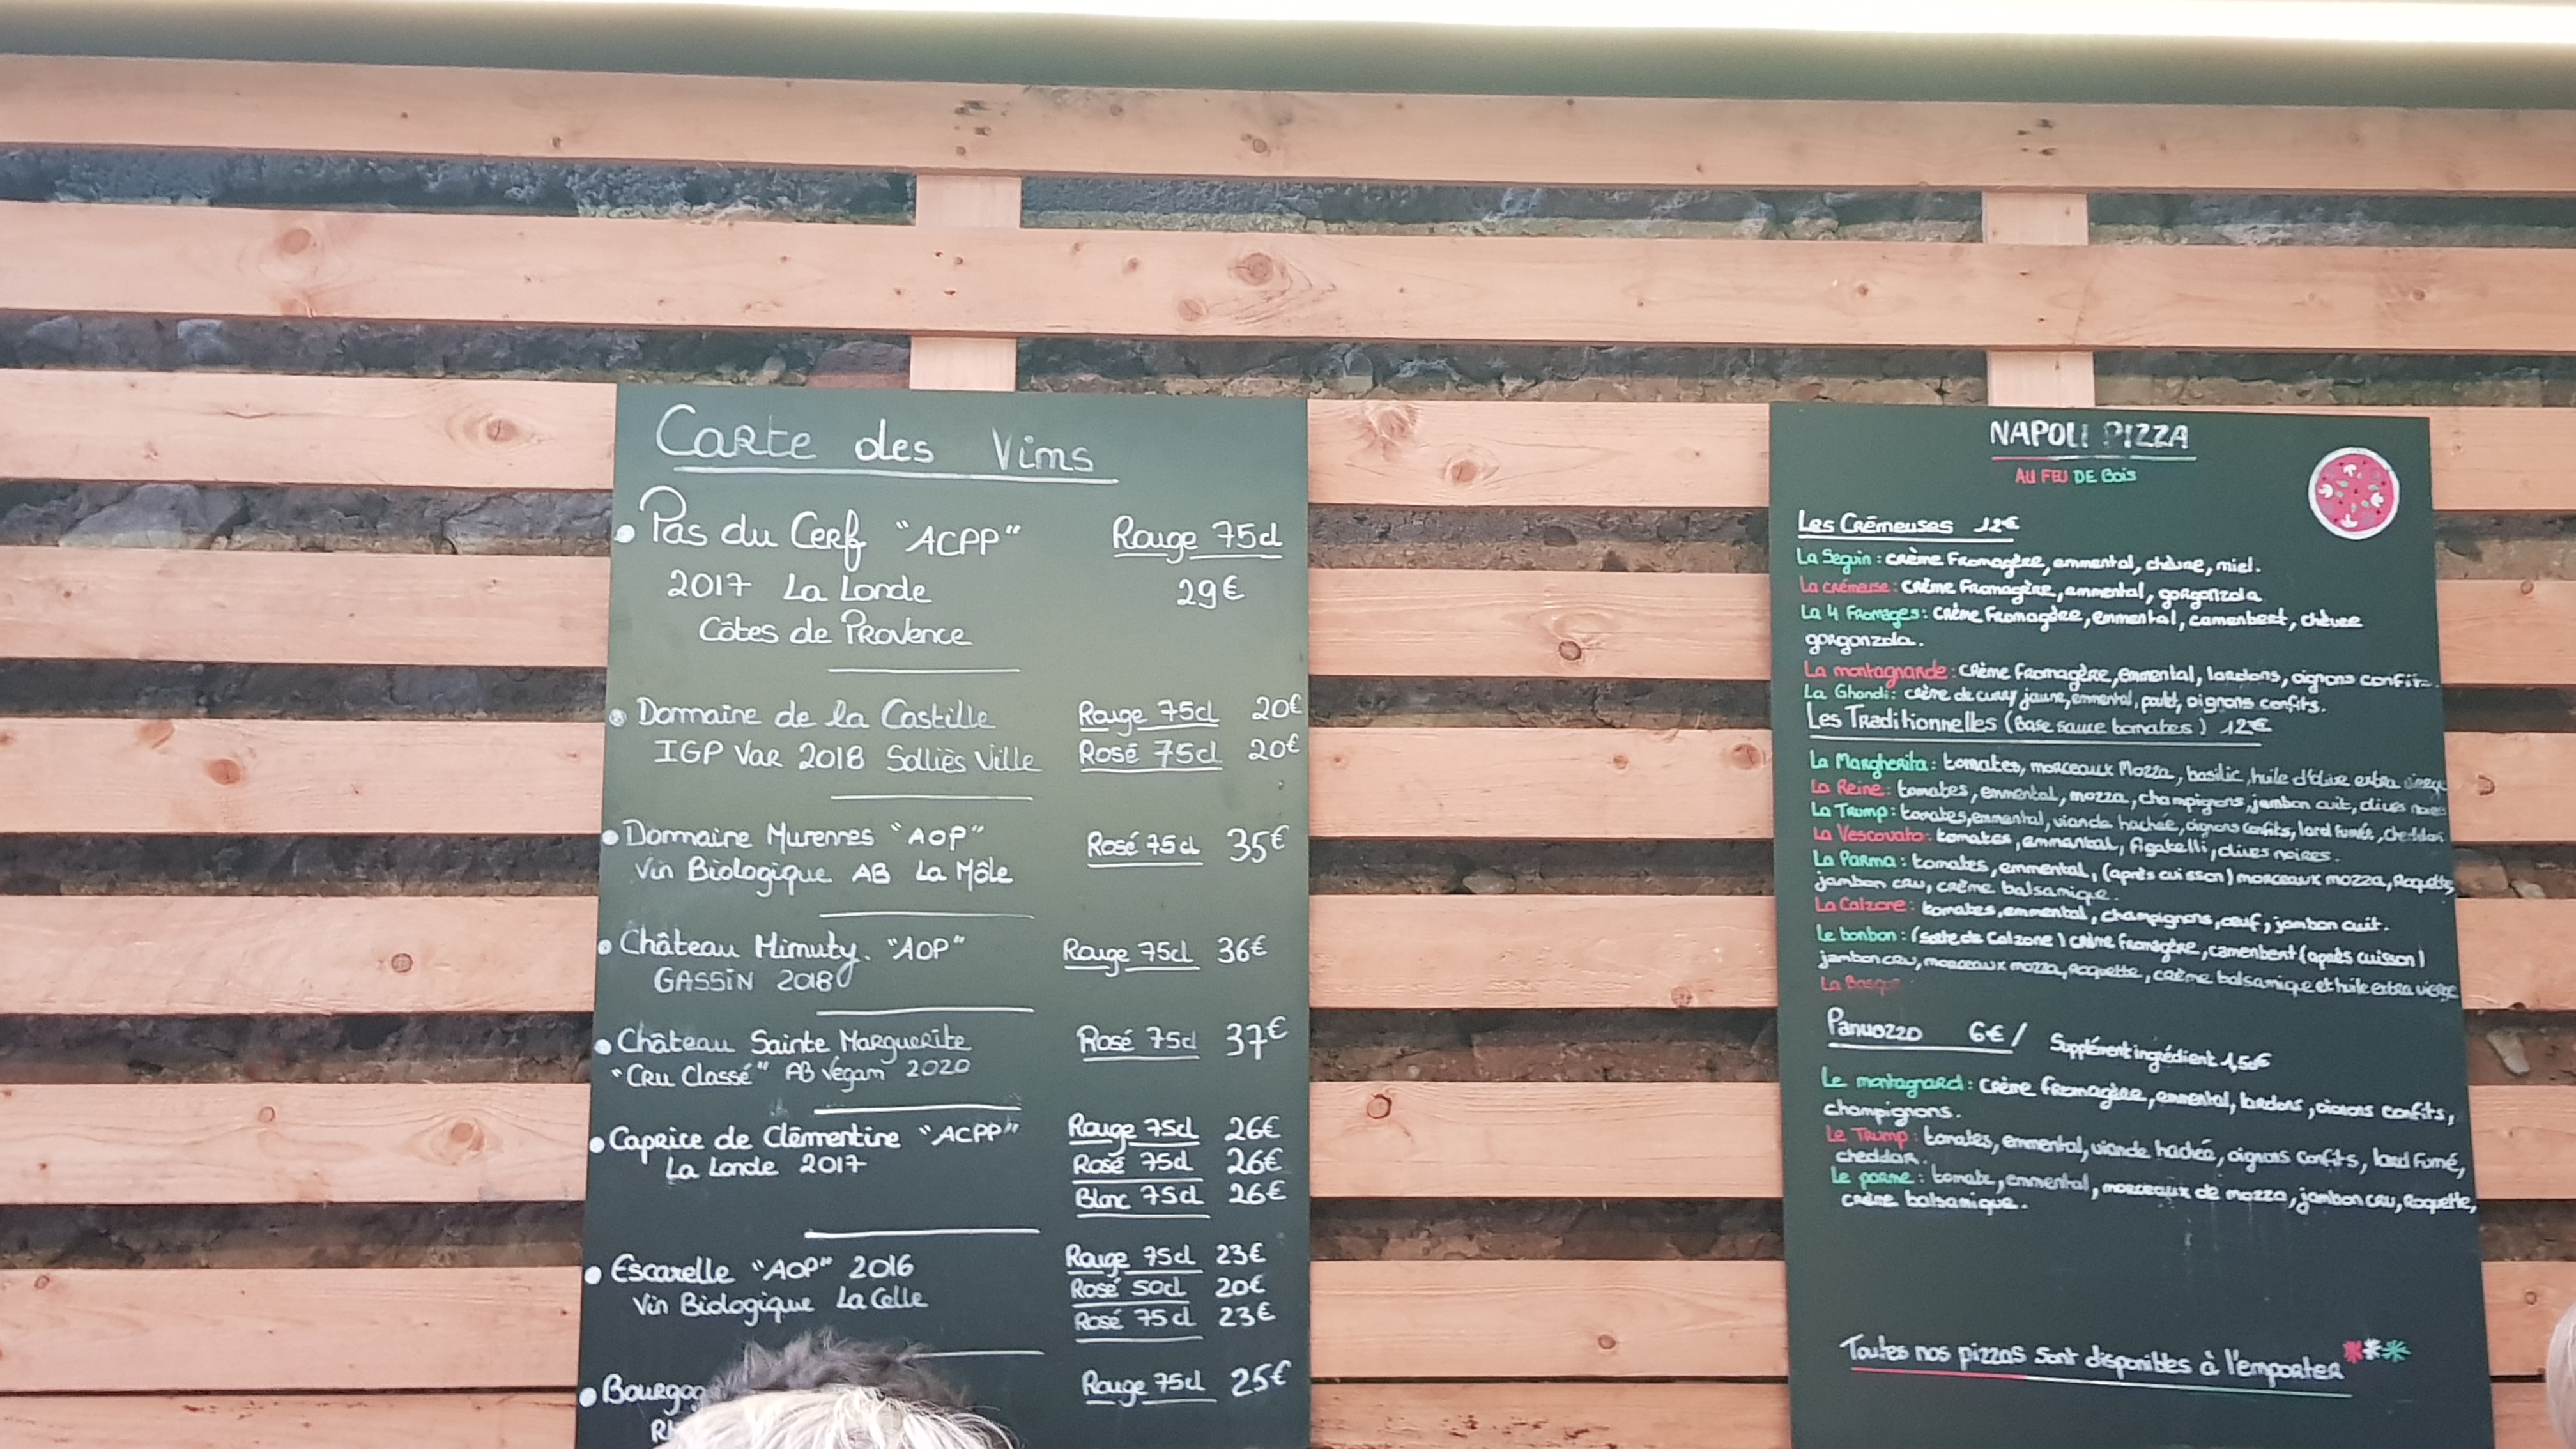 Carte des Vins
Pas du Cerf "ACPP" Rouge 75cl
2017 La Londe 29€
Côtes de Provence
Domaine de la Castille Rouge 75cl 20€
IGP Var 2018 Solliès Ville Rosé 75cl 20€
Dommaine Murennes "AOP" Rosé 75cl 35€
Vin Biologique AB La Môle
Château Minuty. "AOP" Rouge 75cl 36€
GASSIN 2018
Château Sainte Marguerite Rosé 75cl 37€
"Cru Classé" AB Vegan 2020
Caprice de Clémentine "ACPP" Rouge 75cl 26€
La Londe 2017 Rosé 75cl 26€
Blanc 75cl 26€
Escarelle "AOP" 2016 Rouge 75cl 23€
Vin Biologique La Celle Rosé 50cl 20€
Rosé 75cl 23€
Rouge 75cl 25€
NAPOLI PIZZA
AU FEU DE BOIS
Les Crémeuses 12€
La Seguin : crème Fromagère, emmental, chèvre, miel.
La crémeuse : crème Fromagère, emmental, gorgonzola
La 4 Fromages : crème Fromagère, emmental, camenbert, chèvre
gorgonzola.
La montagnarde : crème fromagère, emmental, lardons, oignons confits.
La Ghandi : crème de curry jaune, emmental, poulet, oignons confits.
Les Traditionnelles (Base sauce tomates) 12€
La Margherita : tomates, morceaux Mozza, basilic, huile d'olive extra vierge
La Reine : tomates, emmental, mozza, champignons, jambon cuit, olives noires
La Trump : tomates, emmental, viande hachée, oignons confits, lard fumés, cheddar
La Vescovato : tomates, emmental, figatelli, olives noires.
La Parma : tomates, emmental, (après cuisson) morceaux mozza, Roquette,
jambon cru, crème balsamique.
La Calzone : tomates, emmental, champignons, œuf, jambon cuit.
Le bonbon : (sorte de Calzone) crème fromagère, camenbert (après cuisson)
jambon cru, morceaux mozza, Roquette, crème balsamique et huile extra vierge
La
Panuozzo 6€/ Supplément ingrédient 1,50€
Le montagnard : crème fromagère, emmental, lardons, oignons confits,
champignons.
Le Trump : tomates, emmental, viande hachée, oignons confits, lard fumé,
cheddar.
Le parme : tomate, emmental, morceaux de mozza, jambon cru, Roquette,
crème balsamique.
Toutes nos pizzas sont disponibles à l'emporter